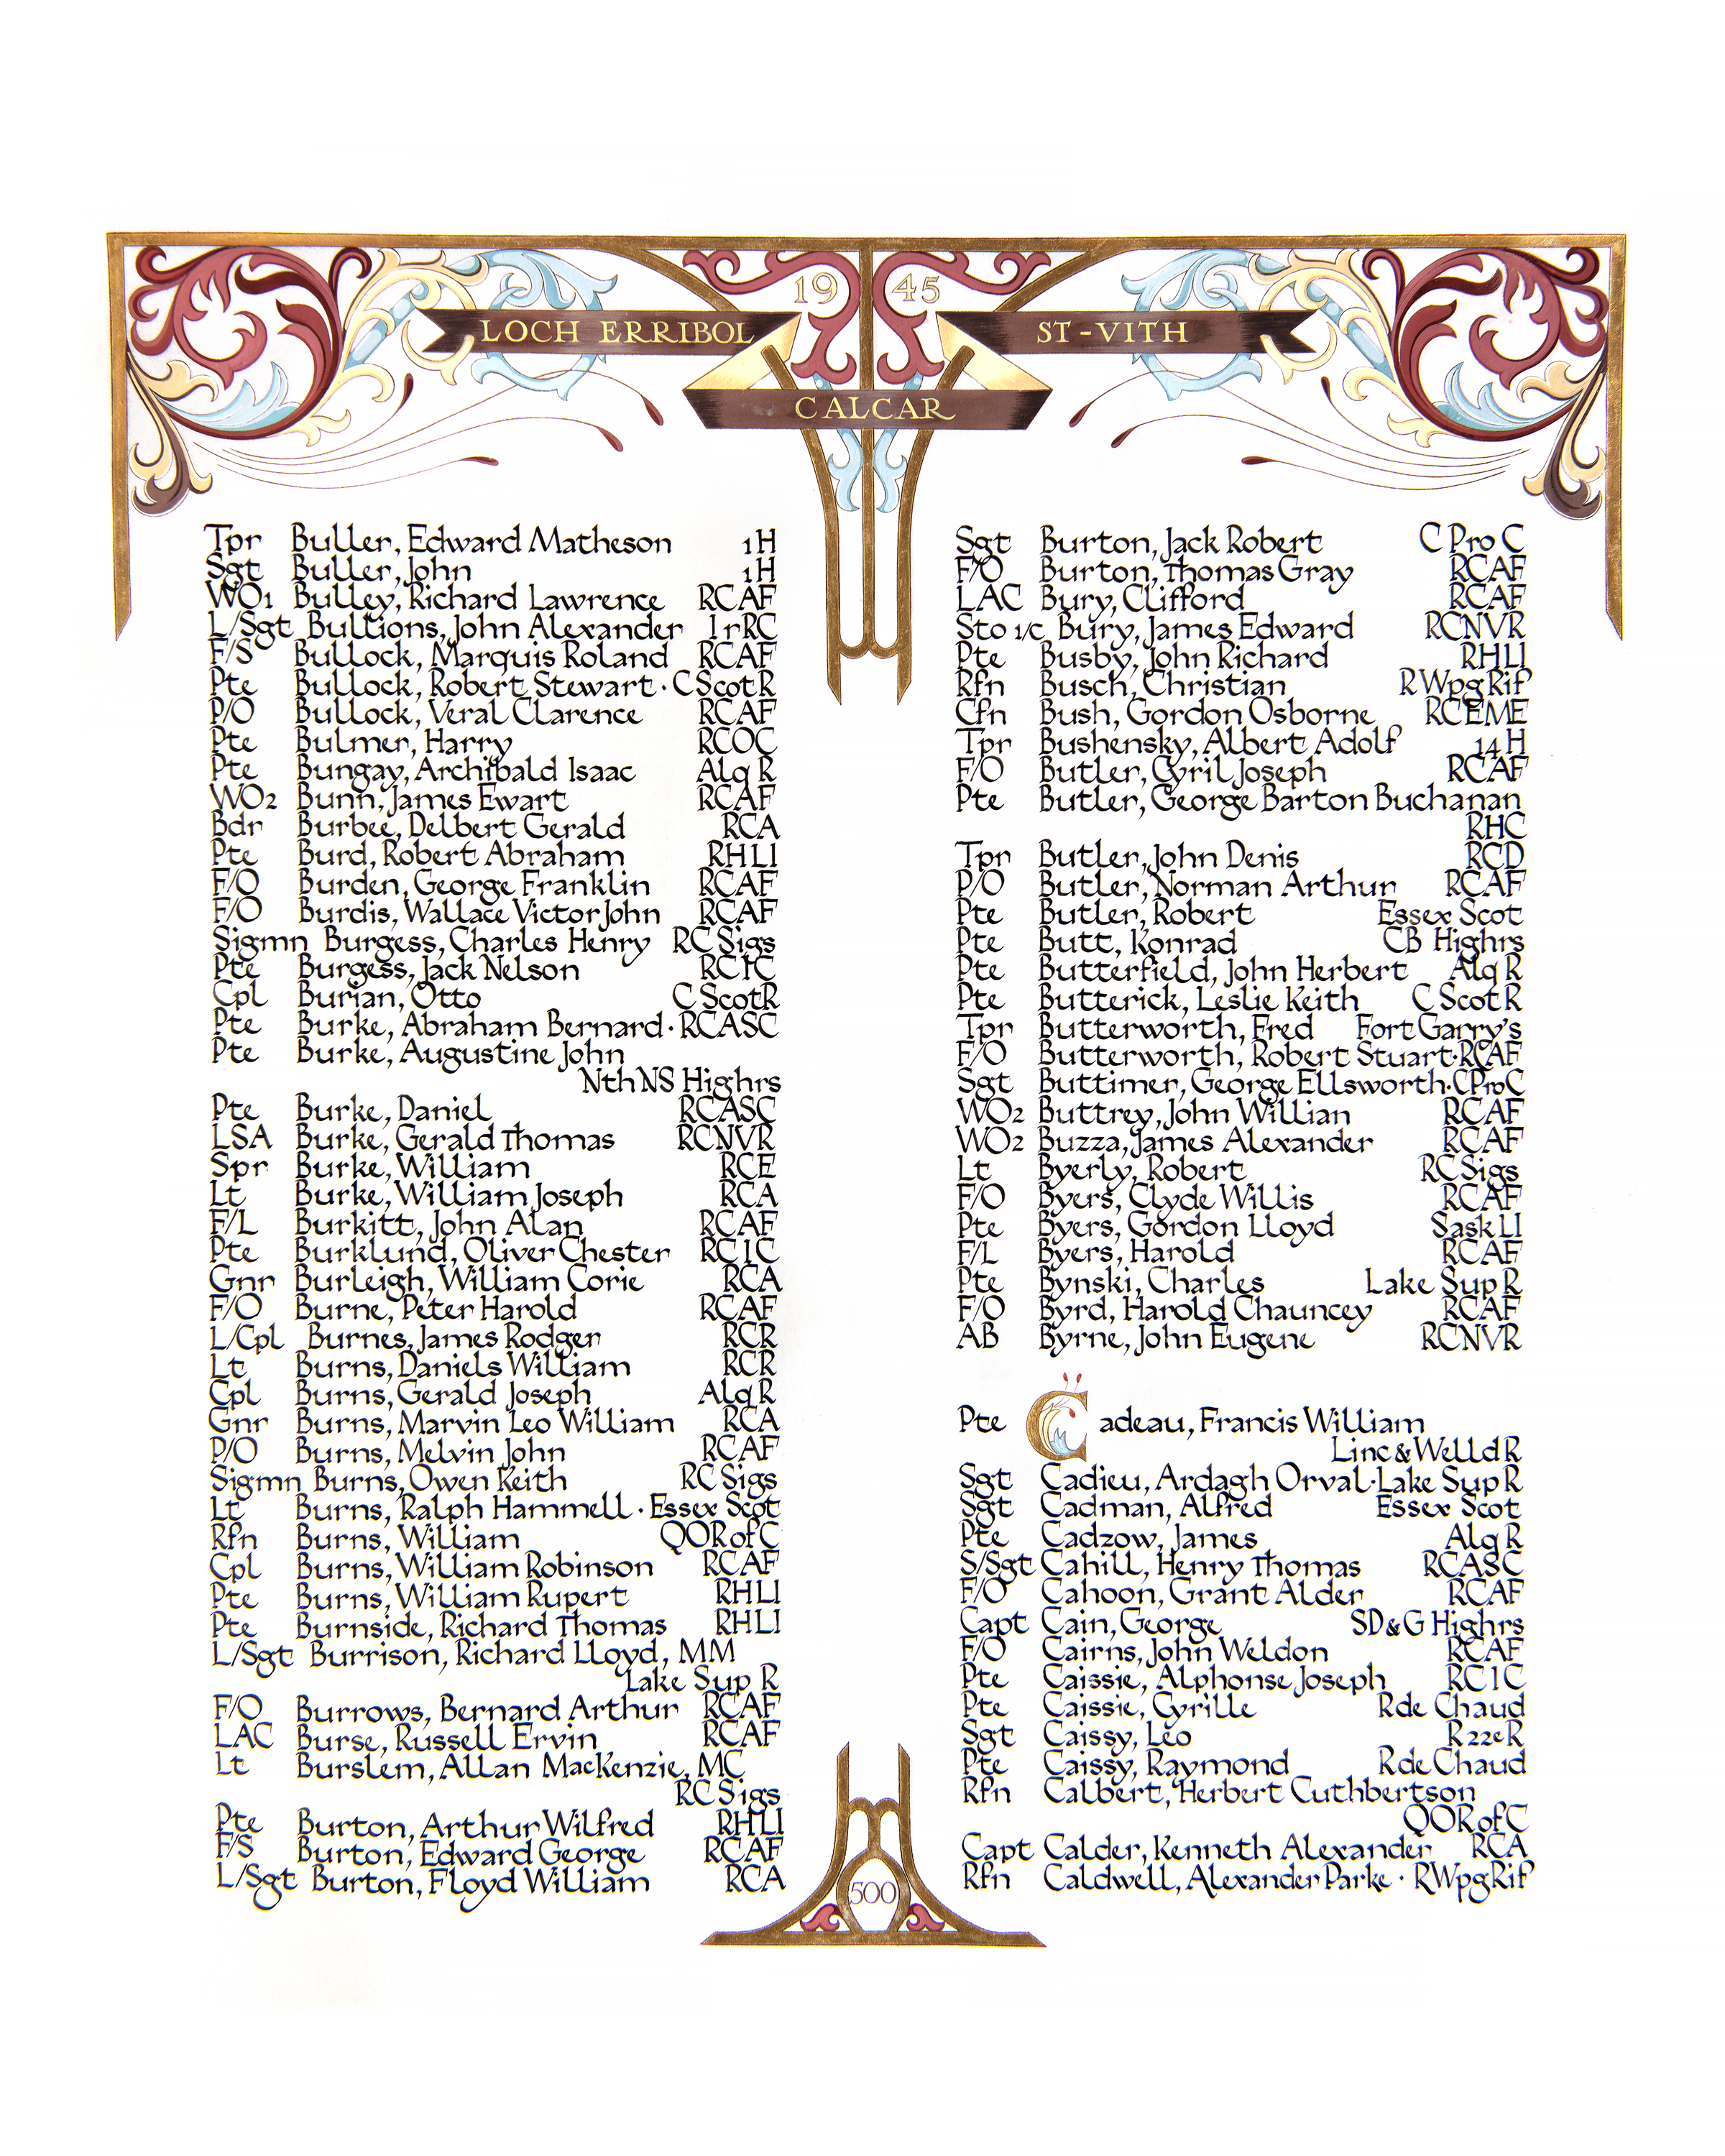 19 45
LOCH ERRIBOL
ST-VITH
CALCAR
Tpr Buller, Edward Matheson 1H
Sgt Buller, John 1H
WO1 Bulley, Richard Lawrence RCAF
L/Sgt Bullions, John Alexander IrRC
F/S Bullock, Marquis Roland RCAF
Pte Bullock, Robert Stewart · C ScotR
P/O Bullock, Veral Clarence RCAF
Pte Bulmer, Harry RCOC
Pte Bungay, Archibald Isaac Alq R
WO2 Bunn, James Ewart RCAF
Bdr Burbee, Delbert Gerald RCA
Pte Burd, Robert Abraham RHLI
F/O Burden, George Franklin RCAF
F/O Burdis, Wallace Victor John RCAF
Sigmn Burgess, Charles Henry RC Sigs
Pte Burgess, Jack Nelson RCIC
Cpl Burian, Otto C ScotR
Pte Burke, Abraham Bernard · RCASC
Pte Burke, Augustine John
NthNS Highrs
Pte Burke, Daniel RCASC
LSA Burke, Gerald Thomas RCNVR
Spr Burke, William RCE
Lt Burke, William Joseph RCA
F/L Burkitt, John Alan RCAF
Pte Burklund, Oliver Chester RCIC
Gnr Burleigh, William Corie RCA
F/O Burne, Peter Harold RCAF
L/Cpl Burnes, James Rodger RCR
Lt Burns, Daniels William RCR
Cpl Burns, Gerald Joseph Alq R
Gnr Burns, Marvin Leo William RCA
P/O Burns, Melvin John RCAF
Sigmn Burns, Owen Keith RC Sigs
Lt Burns, Ralph Hammell · Essex Scot
Rfn Burns, William QOR of C
Cpl Burns, William Robinson RCAF
Pte Burns, William Rupert RHLI
Pte Burnside, Richard Thomas RHLI
L/Sgt Burrison, Richard Lloyd, MM
Lake Sup R
F/O Burrows, Bernard Arthur RCAF
LAC Burse, Russell Ervin RCAF
Lt Burslem, Allan MacKenzie, MC
RC Sigs
Pte Burton, Arthur Wilfred RHLI
F/S Burton, Edward George RCAF
L/Sgt Burton, Floyd William RCA
Sgt Burton, Jack Robert C Pro C
F/O Burton, Thomas Gray RCAF
LAC Bury, Clifford RCAF
Sto 1/c Bury, James Edward RCNVR
Pte Busby, John Richard RHLI
Rfn Busch, Christian R Wpg Rif
Cfn Bush, Gordon Osborne RCEME
Tpr Bushensky, Albert Adolf 14 H
F/O Butler, Cyril Joseph RCAF
Pte Butler, George Barton Buchanan
RHC
Tpr Butler, John Denis RCD
P/O Butler, Norman Arthur RCAF
Pte Butler, Robert Essex Scot
Pte Butt, Konrad CB Highrs
Pte Butterfield, John Herbert Alq R
Pte Butterick, Leslie Keith C Scot R
Tpr Butterworth, Fred Fort Garry's
F/O Butterworth, Robert Stuart · RCAF
Sgt Buttimer, George Ellsworth · C Pro C
WO2 Buttrey, John Willian RCAF
WO2 Buzza, James Alexander RCAF
Lt Byerly, Robert RC Sigs
F/O Byers, Clyde Willis RCAF
Pte Byers, Gordon Lloyd Sask LI
F/L Byers, Harold RCAF
Pte Bynski, Charles Lake Sup R
F/O Byrd, Harold Chauncey RCAF
AB Byrne, John Eugene RCNVR
Pte Cadeau, Francis William
Linc & Welld R
Sgt Cadieu, Ardagh Orval · Lake Sup R
Sgt Cadman, Alfred Essex Scot
Pte Cadzow, James Alq R
S/Sgt Cahill, Henry Thomas RCASC
F/O Cahoon, Grant Alder RCAF
Capt Cain, George SD & G Highrs
F/O Cairns, John Weldon RCAF
Pte Caissie, Alphonse Joseph RCIC
Pte Caissie, Cyrille R de Chaud
Sgt Caissy, Leo R22eR
Pte Caissy, Raymond R de Chaud
Rfn Calbert, Herbert Cuthbertson
QOR of C
Capt Calder, Kenneth Alexander RCA
Rfn Caldwell, Alexander Parke · R Wpg Rif
500